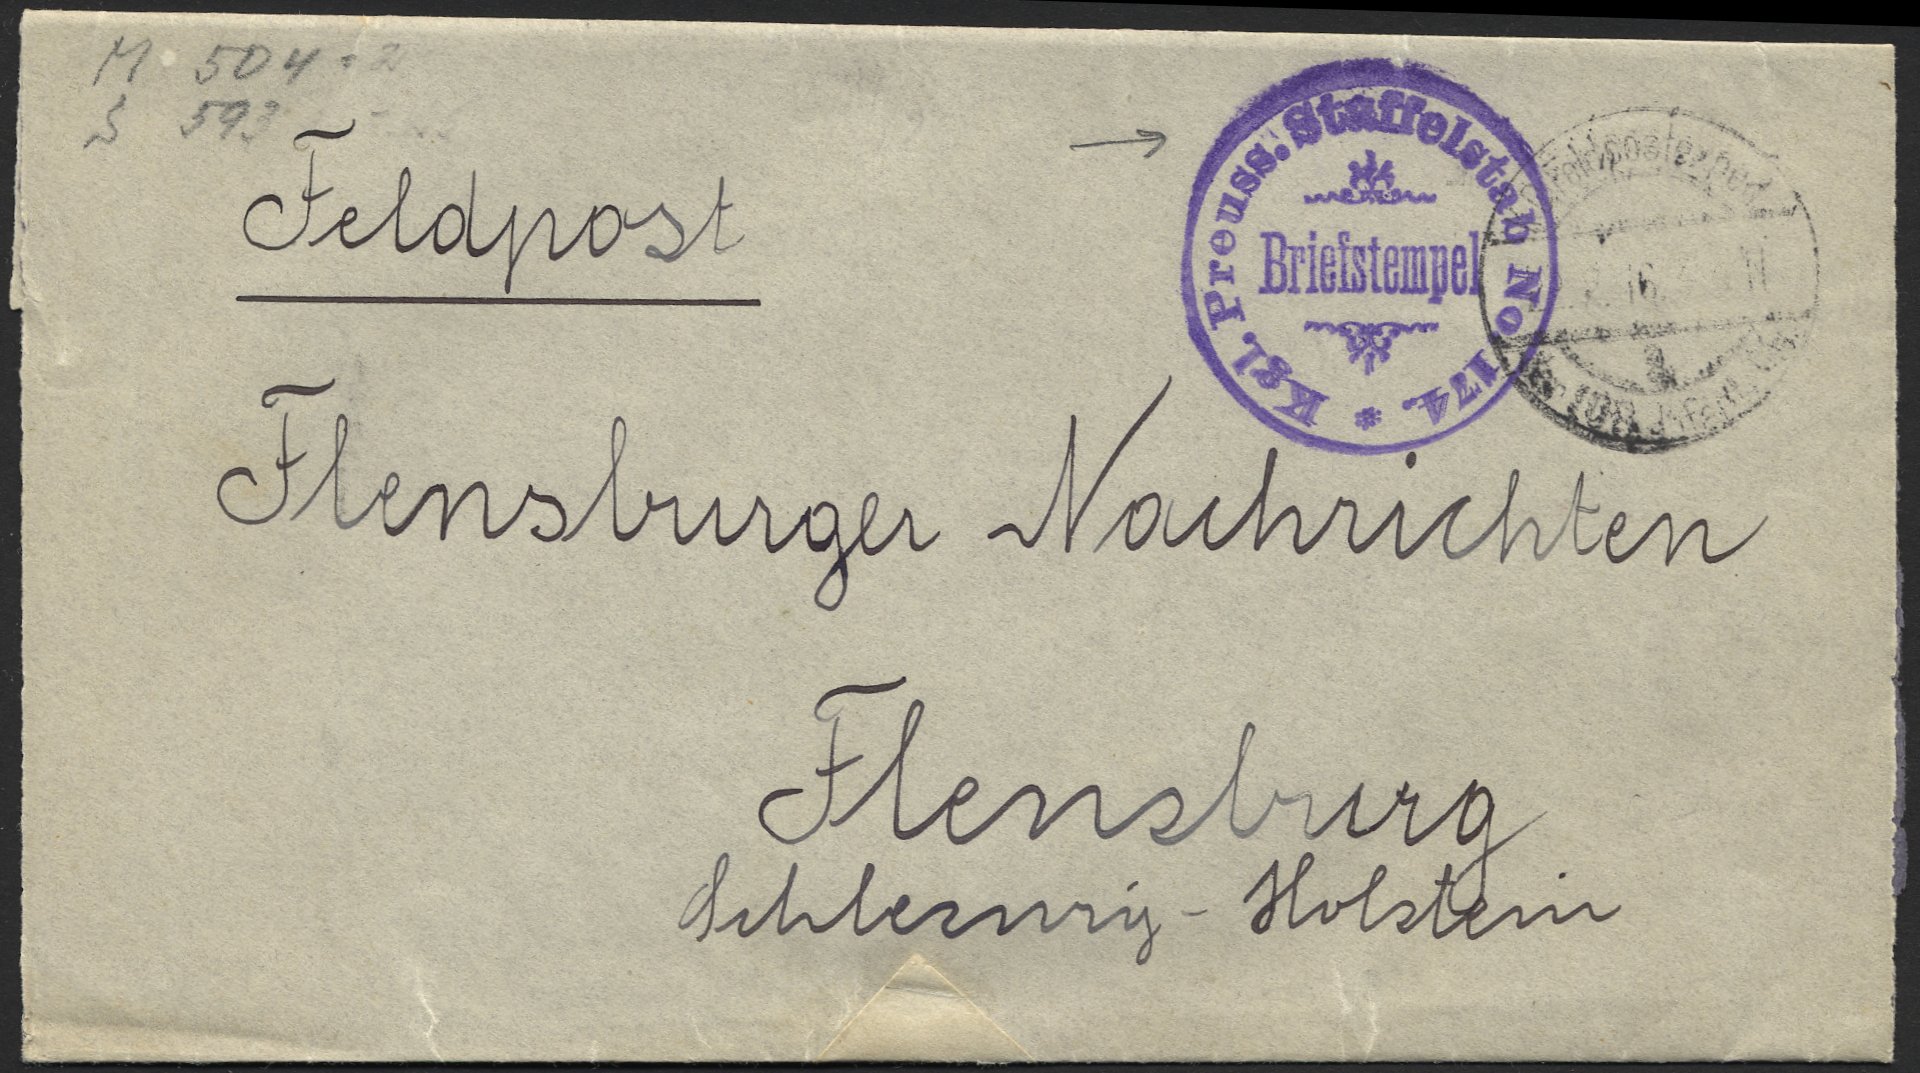 M. 504
S 593
Feldpost
Kgl. Preuss. Staffelstab No 174. *
Briefstempel
Feldpostexped.
Flensburger Nachrichten
Flensburg
Schleswig-Holstein